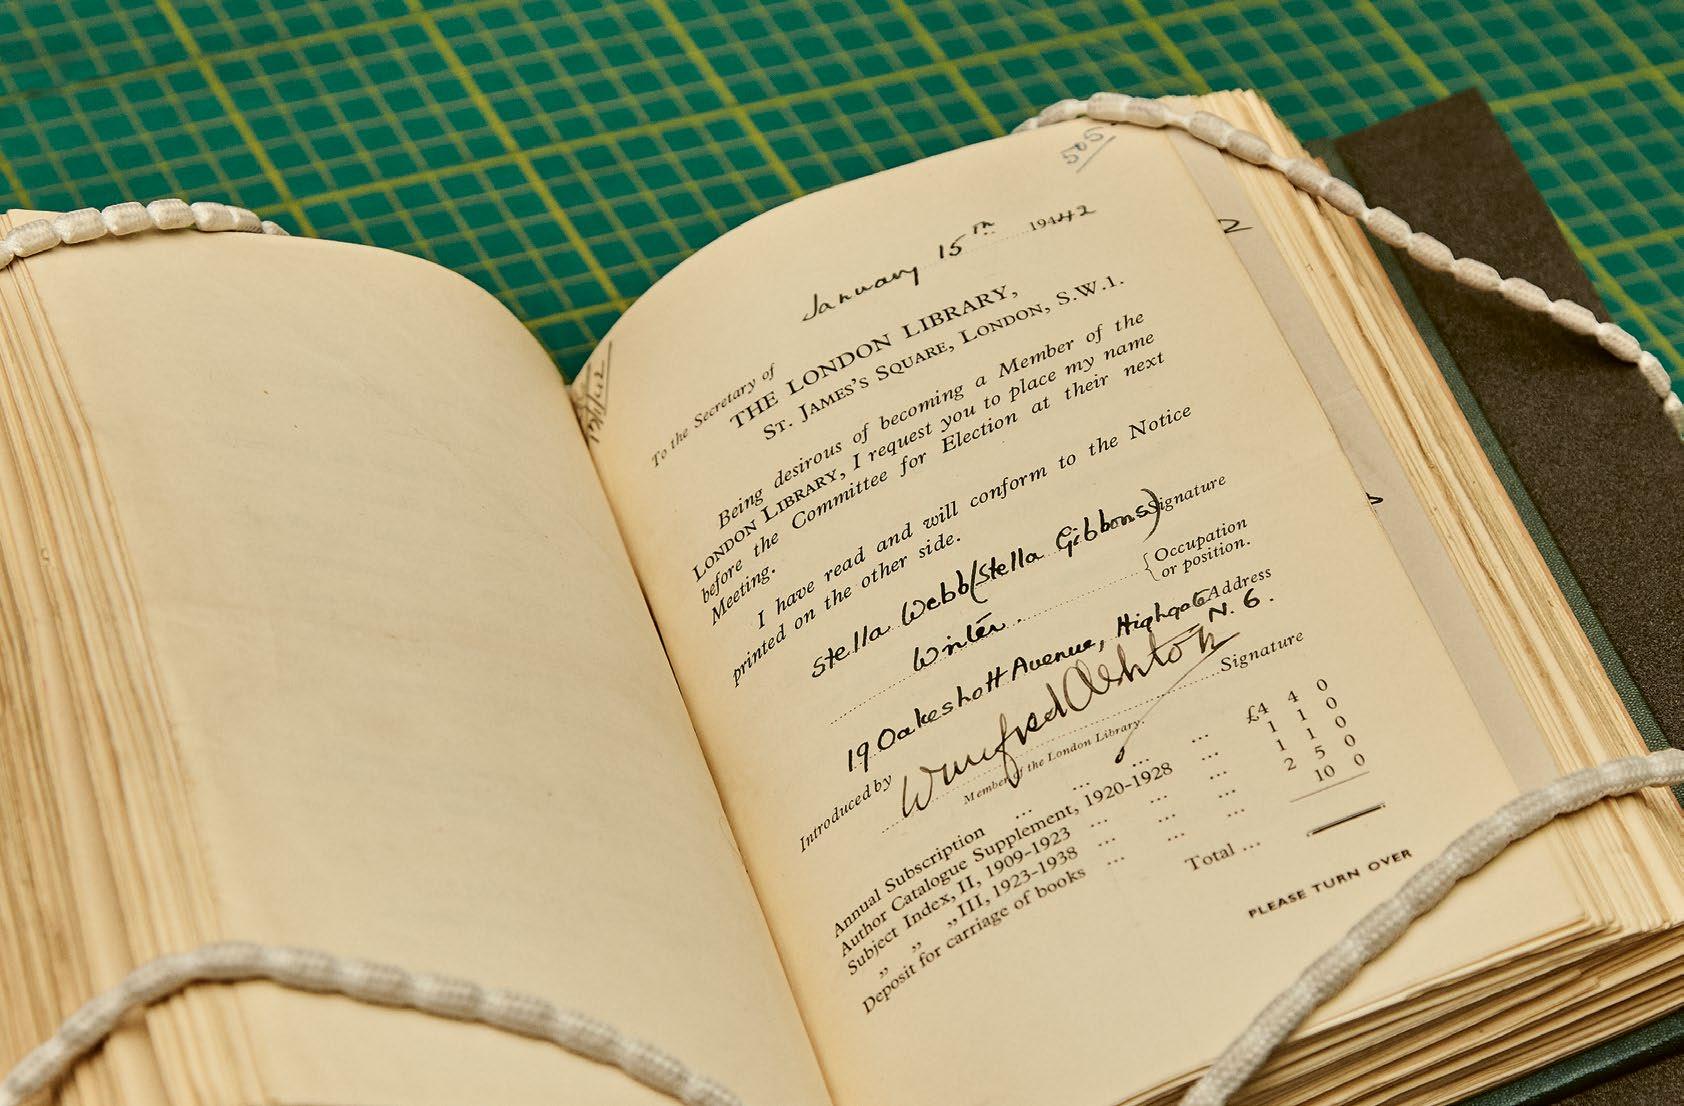 505
January 15th 19442
To the Secretary of
THE LONDON LIBRARY,
ST. JAMES'S SQUARE, LONDON, S.W.1.
Being desirous of becoming a Member of the
LONDON LIBRARY, I request you to place my name
before the Committee for Election at their next
Meeting.
I have read and will conform to the Notice
printed on the other side.
Stella Webb (Stella Gibbons) Signature
Writer. { Occupation
or position.
19 Oakeshott Avenue, Highgate Address
N. 6.
Introduced by Winifred Ashton Signature
Member of the London Library.
Annual Subscription ... ... ... £4 4 0
Author Catalogue Supplement, 1920-1928 ... 1 1 0
Subject Index, II, 1909-1923 ... ... ... 1 1 0
„ „ III, 1923-1938 ... ... ... 2 5 0
Deposit for carriage of books ... 10 0
Total ...
PLEASE TURN OVER